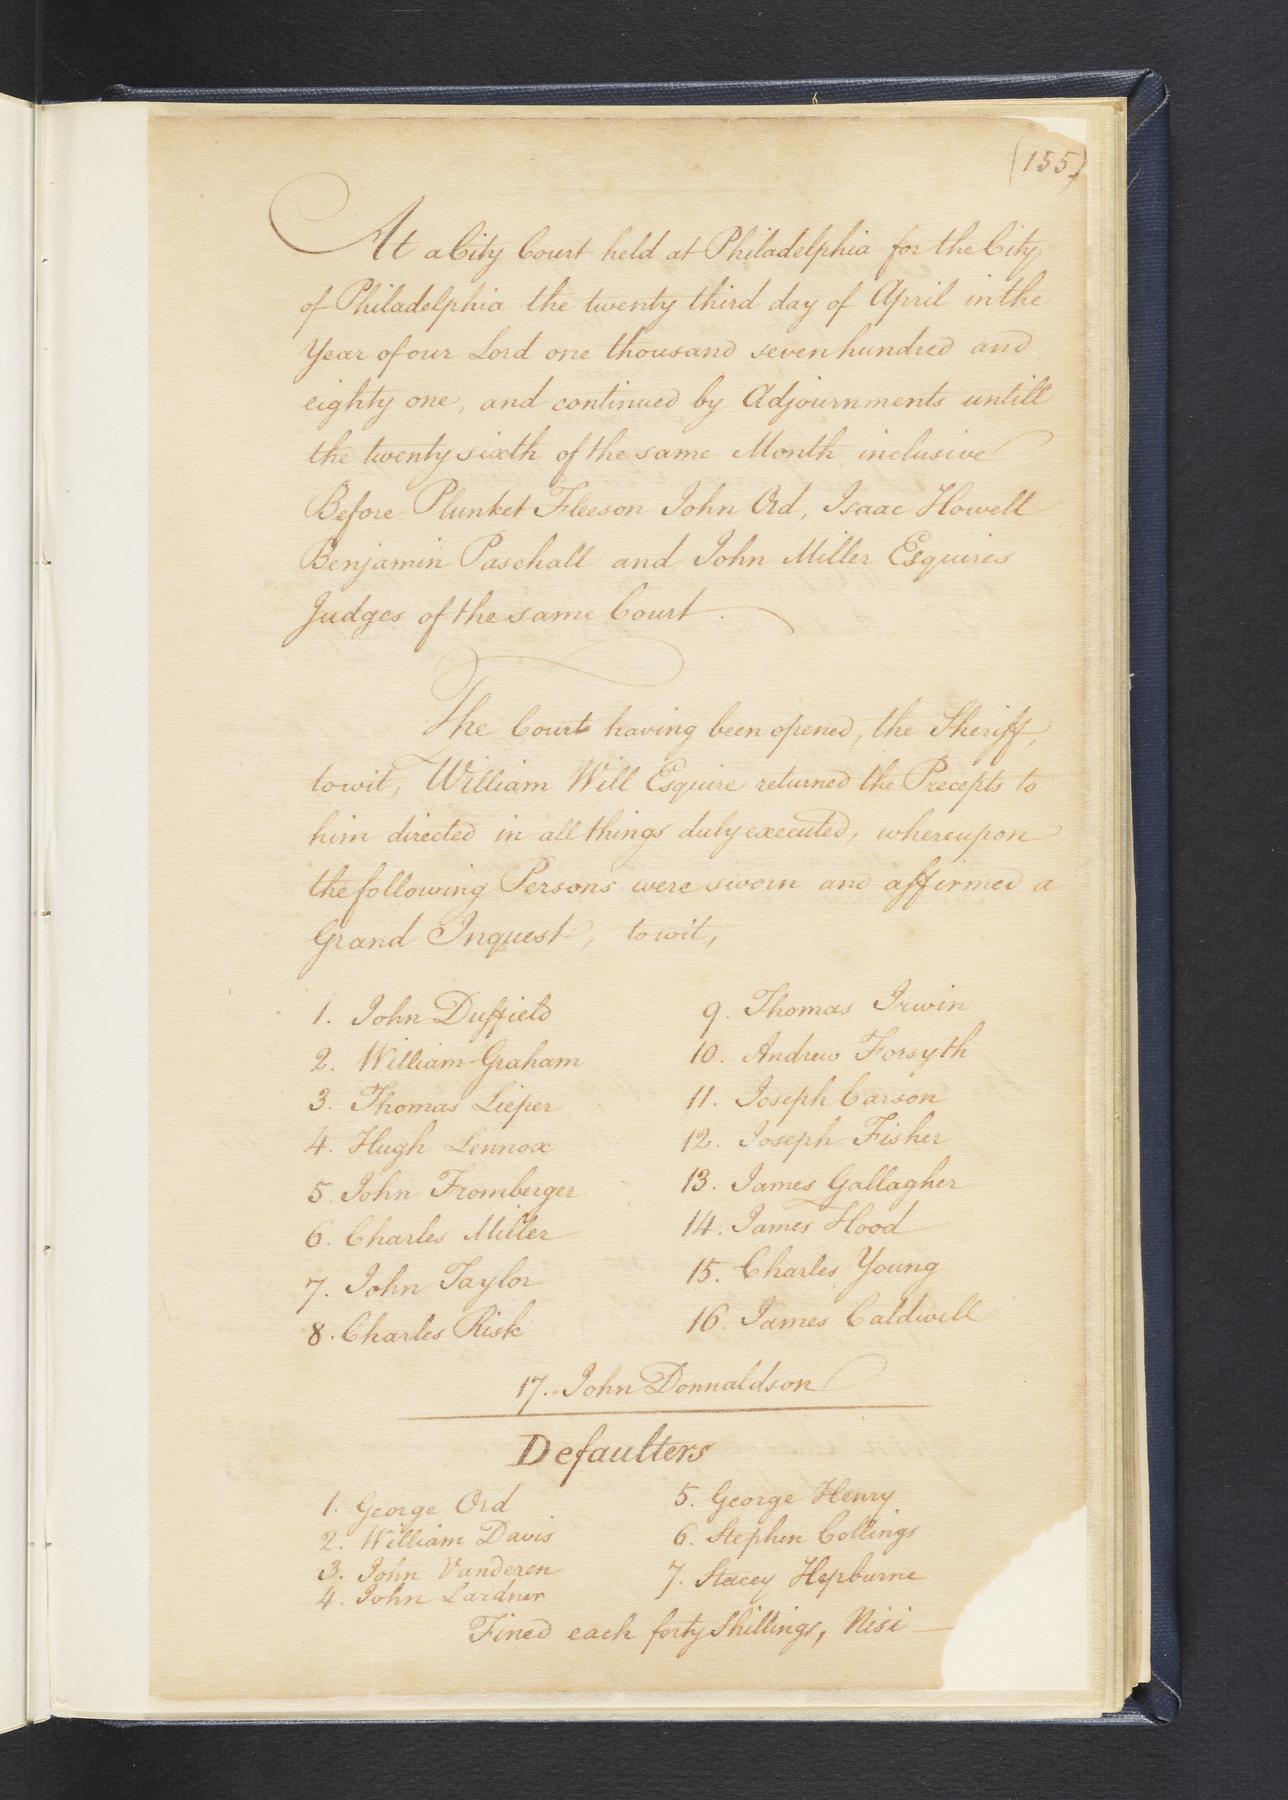 (155)
At a City Court held at Philadelphia for the City
of Philadelphia the twenty third day of April in the
Year of our Lord one thousand seven hundred and
eighty one, and continued by Adjournments untill
the twenty sixth of the same Month inclusive
Before Plunket Fleeson John Ord, Isaac Howell
Benjamin Paschall and John Miller Esquires
Judges of the same Court.
The Court having been opened, the Sheriff,
to wit, William Will Esquire returned the Precepts to
him directed in all things duly executed, whereupon
the following Persons were sworn and affirmed a
Grand Inquest, to wit,
1. John Duffield
2. William Graham
3. Thomas Lieper
4. Hugh Lennox
5. John Fromberger
6. Charles Miller
7. John Taylor
8. Charles Risk
9. Thomas Irwin
10. Andrew Forsyth
11. Joseph Carson
12. Joseph Fisher
13. James Gallagher
14. James Hood
15. Charles Young
16. James Caldwell
17. John Donnaldson
Defaulters
1. George Ord
2. William Davis
3. John Vanderen
4. John Lardner
5. George Henry
6. Stephen Collings
7. Stacey Hepburne
Fined each forty Shillings, Nisi